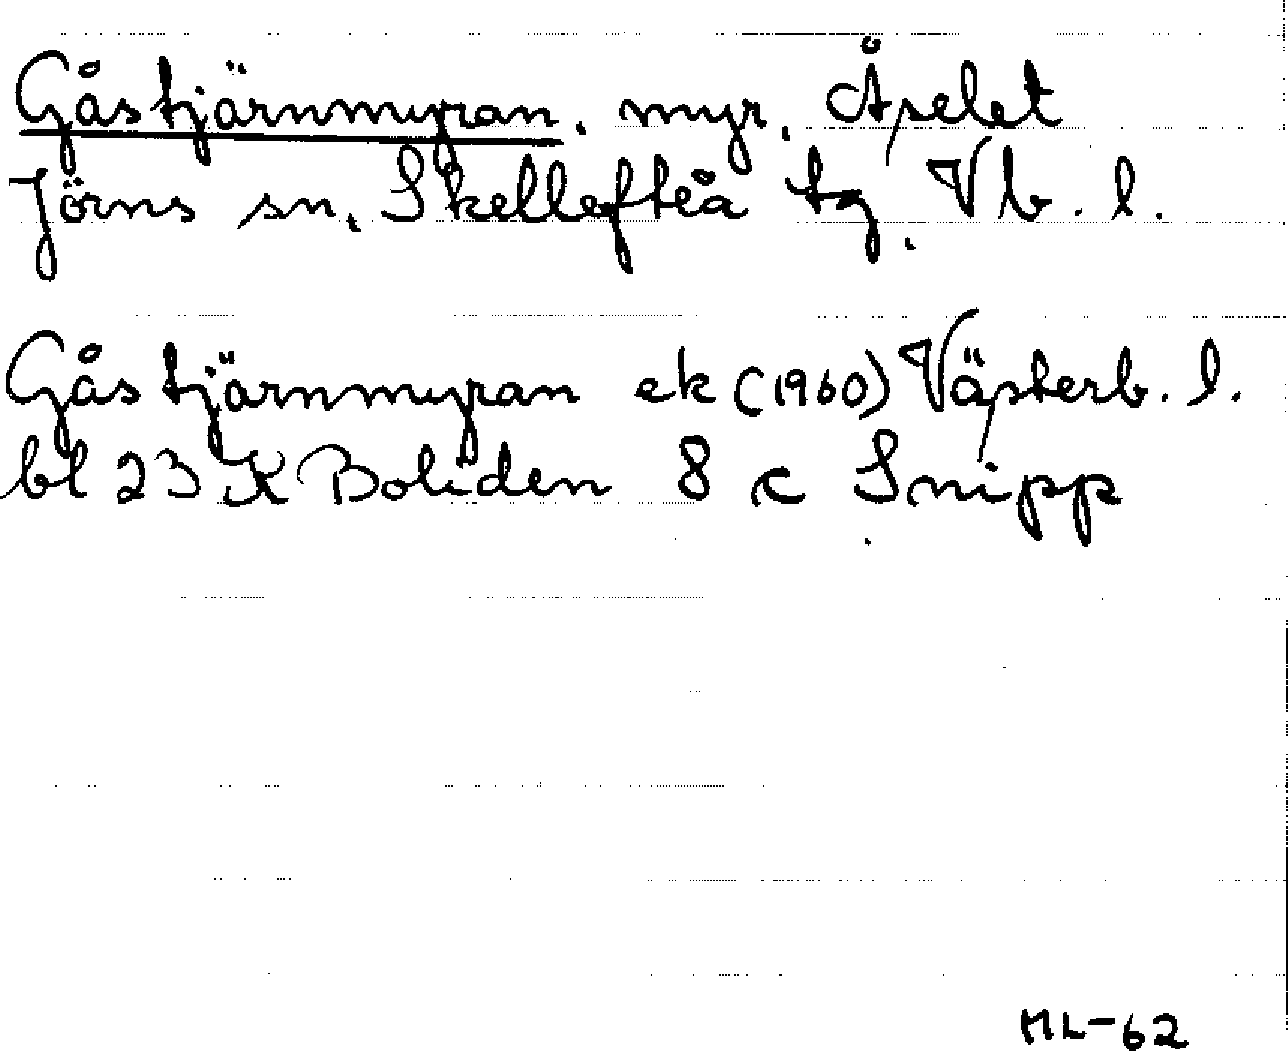 Gåstjärnmyran. myr. Åselet
Jörns sn. Skellefteå tg. Vb. l.
Gåstjärnmyran ek (1960) Västerb. l.
bl 23 K Boliden 8 c Snipp
ML-62